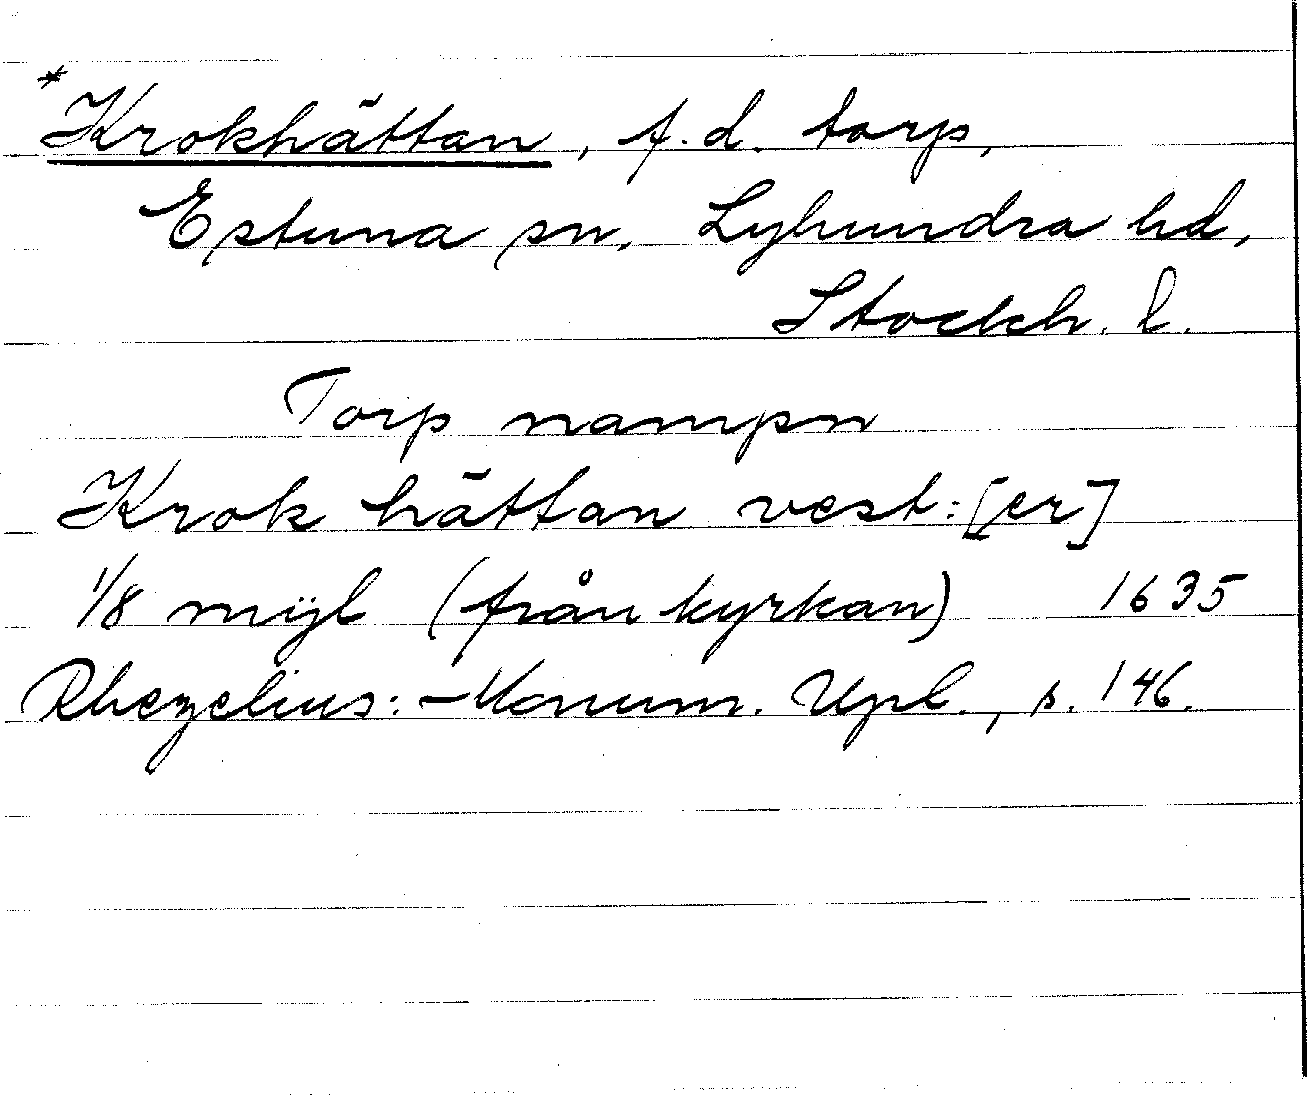 *Krokhättan, f.d. torp,
Estuna sn, Lyhundra hd,
Stockh. l.
Torp nampn
Krok hättan vest:[er]
1/8 mÿl (från kyrkan) 1635
Rhezelius: Monum. Upl., s. 146.